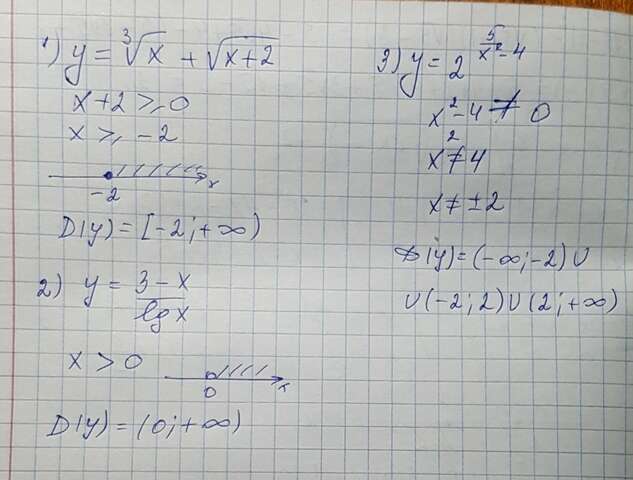 1) y = ∛x + √(x+2)
x+2 ≥ 0
x ≥ -2
-2 x
D(y) = [-2; +∞)
2) y = (3-x)/(lg x)
x > 0
0 x
D(y) = (0; +∞)
3) y = 2^(5/(x²-4))
x²-4 ≠ 0
x² ≠ 4
x ≠ ±2
D(y) = (-∞; -2) ∪
∪ (-2; 2) ∪ (2; +∞)